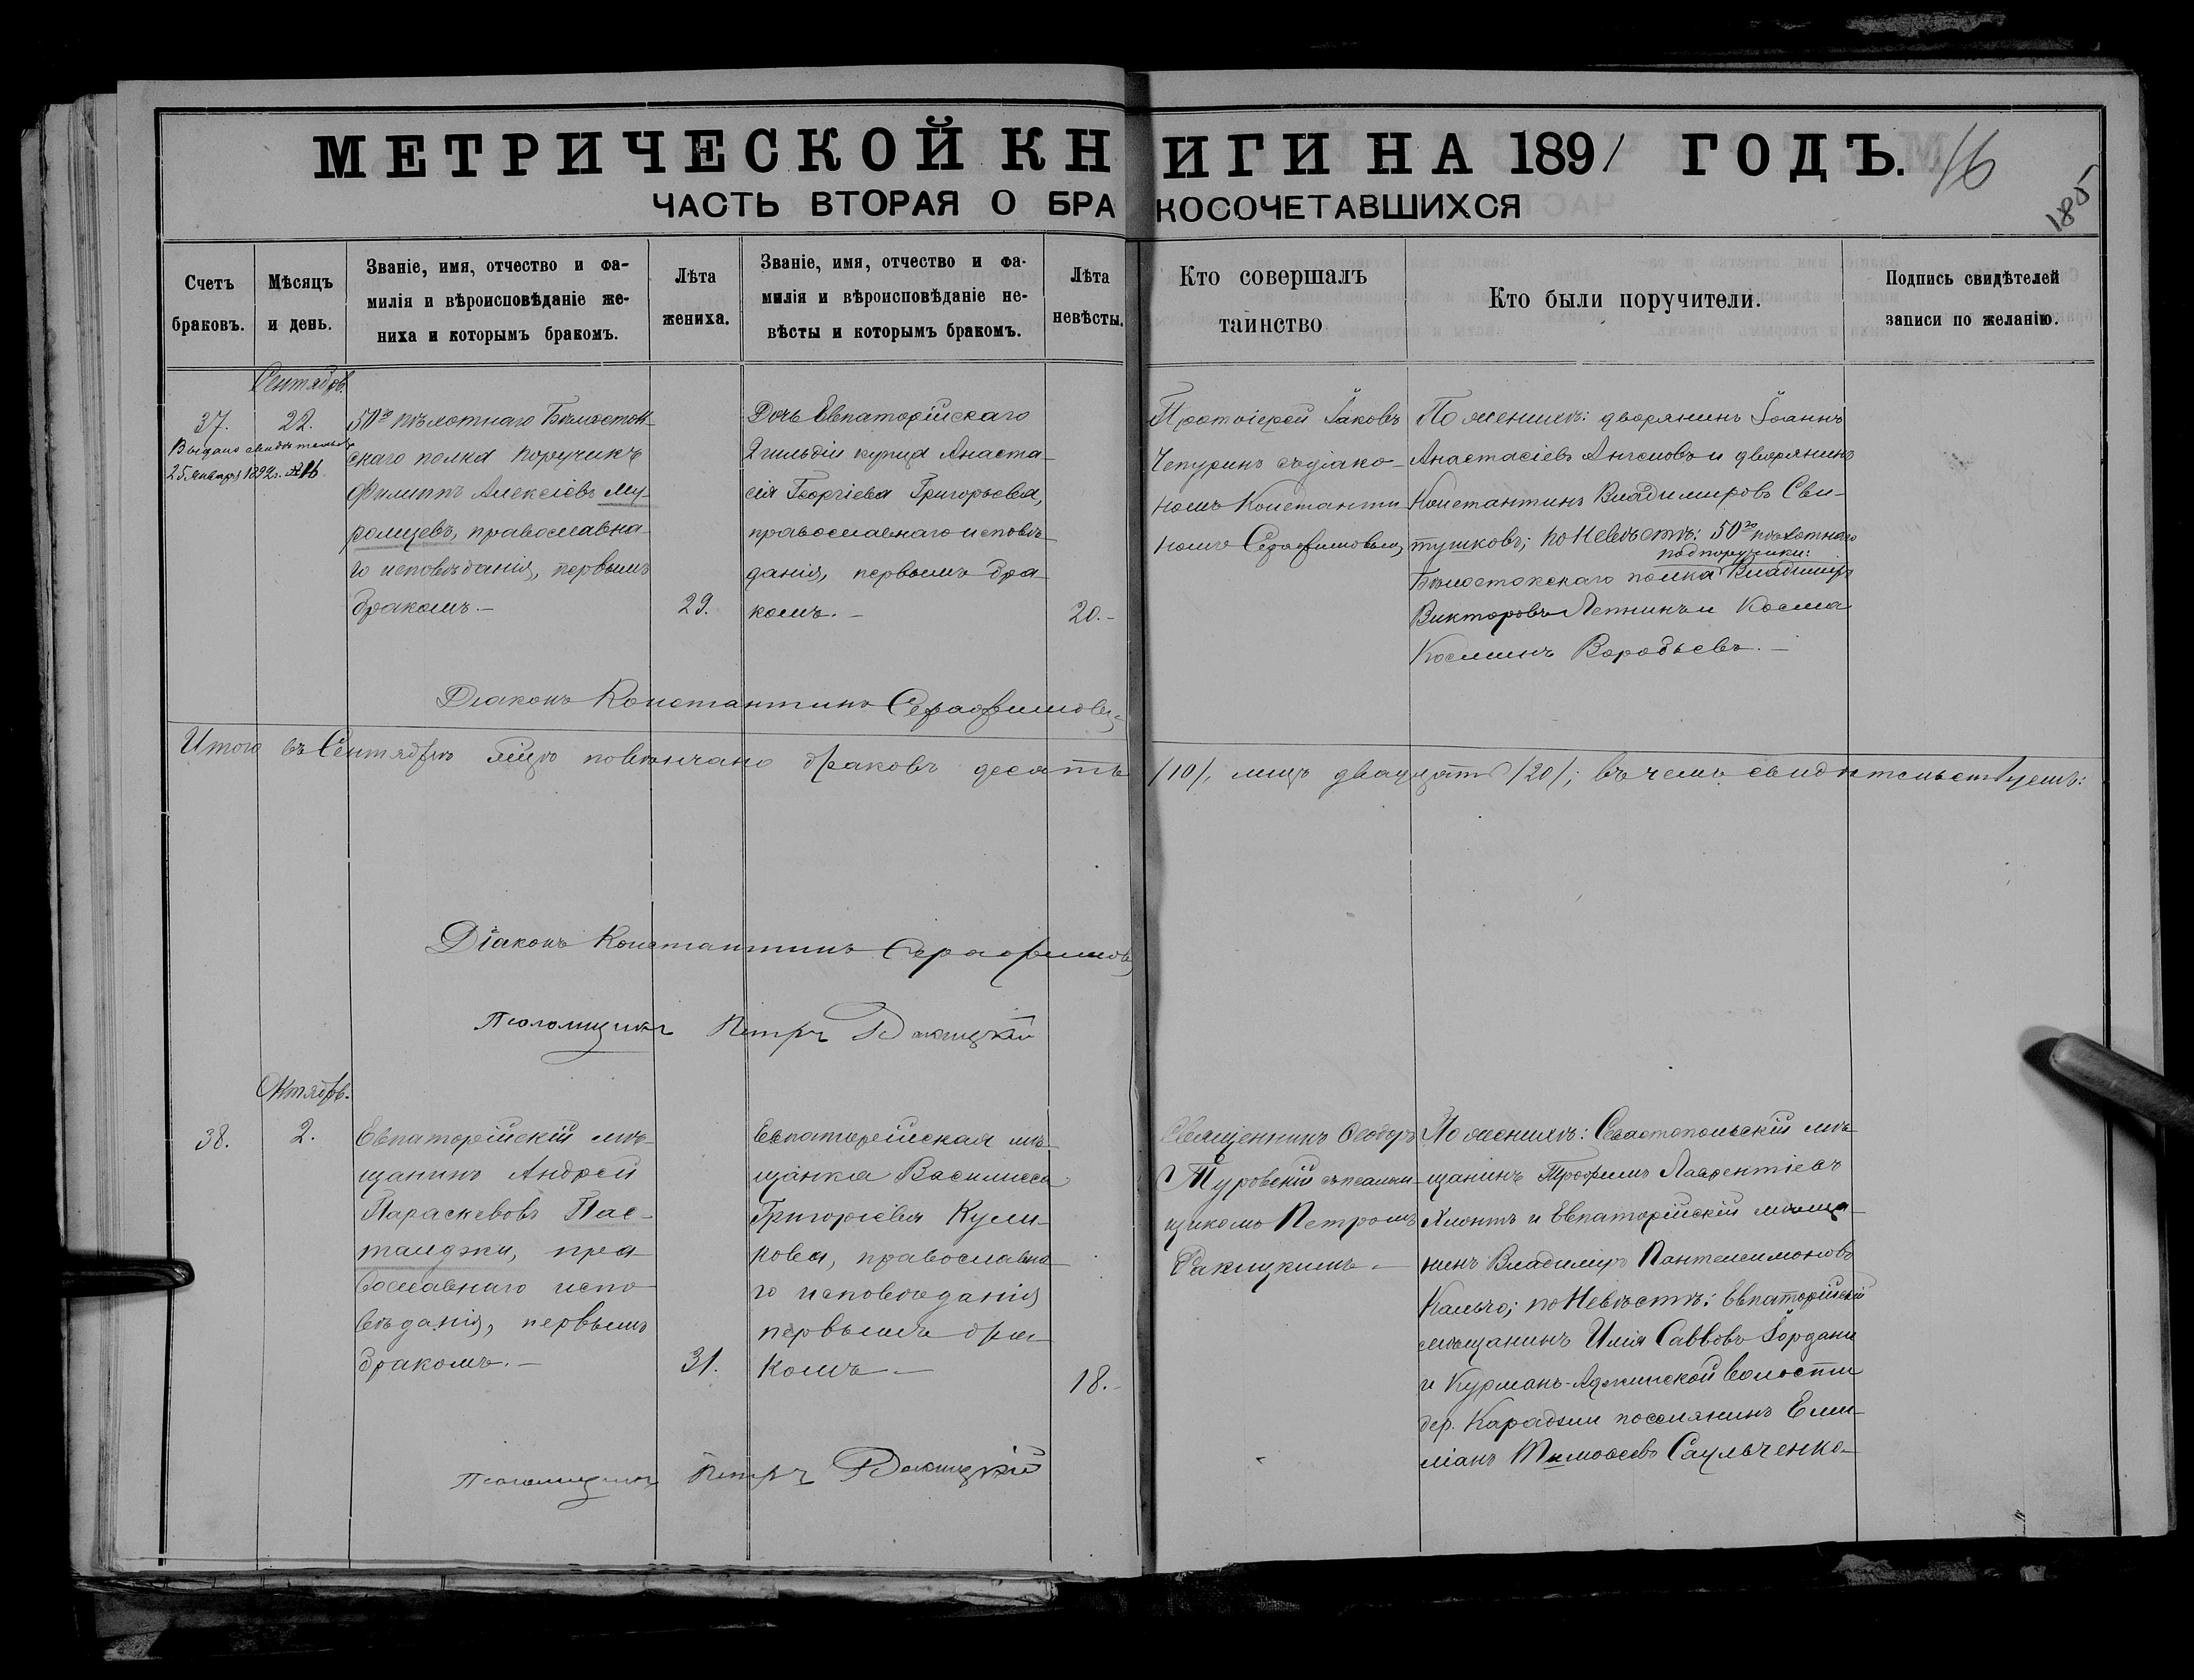 МЕТРИЧЕСКОЙ КНИГИ НА 1891 ГОДЪ.
16
185
ЧАСТЬ ВТОРАЯ О БРАКОСОЧЕТАВШИХСЯ
Счетъ
браковъ.
Мѣсяцъ
и день.
Званіе, имя, отчество и фа-
милія и вѣроисповѣданіе же-
ниха и которымъ бракомъ.
Лѣта
жениха.
Званіе, имя, отчество и фа-
милія и вѣроисповѣданіе не-
вѣсты и которымъ бракомъ.
Лѣта
невѣсты.
Кто совершалъ
таинство
Кто были поручители.
Подпись свидѣтелей
записи по желанію.
Сентябрь.
37.
22.
Выдано свидѣтельство
25 января 1892 г. №
50го пѣхотнаго Бѣлосток-
скаго полка поручикъ
Филиппъ Алексіевъ Му-
ромцевъ, православна-
го исповѣданія, первымъ
бракомъ.-
29.
Дочь Евпаторійскаго
2 гильдіи купца Анаста-
сія Георгіева Григорьева,
православнаго исповѣ-
данія, первымъ бра-
комъ.-
20.-
Протоіерей Іаковъ
Чепуринъ съ діако-
номъ Константи-
номъ Серафимовымъ
По женихѣ: дворянинъ Іоаннъ
Анастасіевъ Ангеловъ и дворянинъ
Константинъ Владимировъ Сви-
тушковъ; по невѣстѣ: 50го пѣхотнаго
подпоручики:
Бѣлостокскаго полка Владимиръ
Викторовъ Лепнинъ и Косма
Косминъ Воробьевъ.-
Діаконъ Константинъ Серафимовъ
Итого въ Сентябрѣ мѣсяцѣ повѣнчано браковъ десять /10/, лицъ двадцать /20/; въ чемъ свидѣтельствуемъ:
Діаконъ Константинъ Серафимовъ
Псаломщикъ Петръ Ракицкій
Октябрь.
38.
2.
Евпаторійскій мѣ-
щанинъ Андрей
Параскевовъ Пас-
танджи, пра-
вославнаго испо-
вѣданія, первымъ
бракомъ.-
31.
Евпаторійская мѣ-
щанка Василисса
Григоріева Кули-
кова, православна-
го исповѣданія
первымъ бра-
комъ-
18.-
Священникъ Ѳеодоръ
Туровскій съ псалом-
щикомъ Петромъ
Ракицкимъ-
По женихѣ: Севастопольскій мѣ-
щанинъ Трофимъ Лаврентіевъ
и Евпаторійскій мѣща-
нинъ Владимиръ Пантелеимоновъ
Кальчо; по невѣстѣ: Евпаторійскій
мѣщанинъ Илія Саввовъ Іордани
и Курманъ-Аджинской волости
дер. поселянинъ Еми-
ліанъ Тимоѳеевъ Саульченко-
Псаломщикъ Петръ Ракицкій